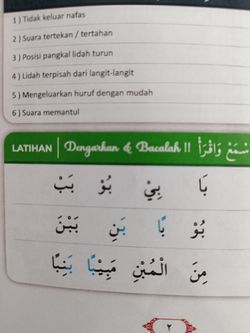 1 ) Tidak keluar nafas
2 ) Suara tertekan / tertahan
3 ) Posisi pangkal lidah turun
4 ) Lidah terpisah dari langit-langit
5 ) Mengeluarkan huruf dengan mudah
6 ) Suara memantul
LATIHAN | Dengarkan & Bacalah !! سْمَعْ وَاقْرَأْ
بَا بِيْ بُوْ بَبْ
بُوْ بًا بَـنِ بَبْنَ
مِنَ الْمُبْنِ مَبِيْبًا بَنِبًا
٢